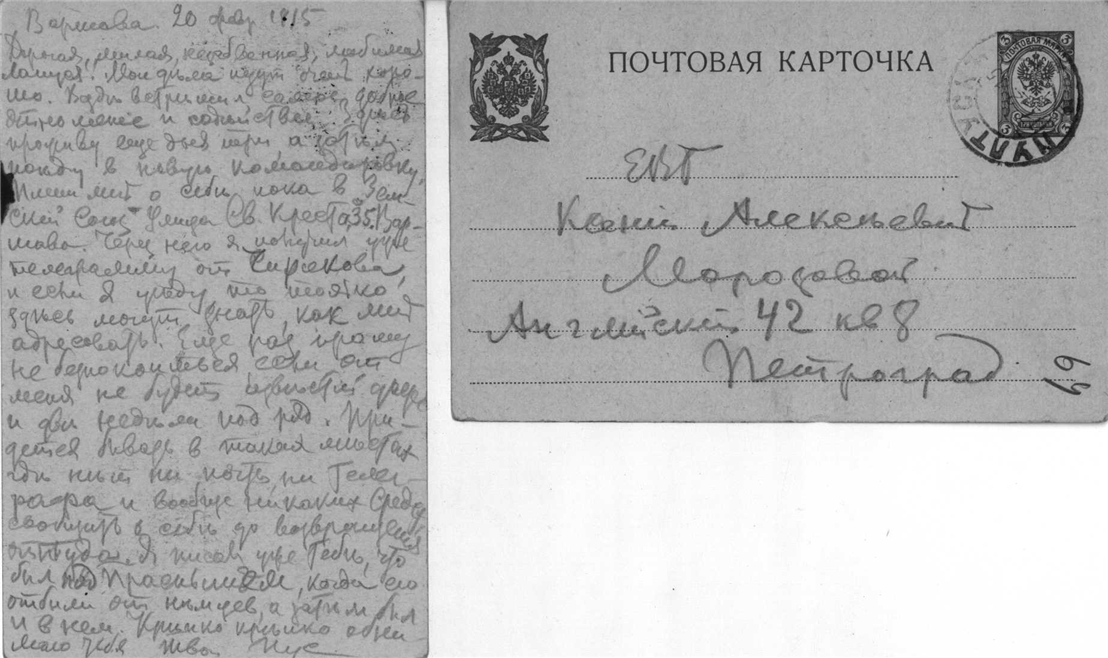 Варшава 20 февр 1915
милая, любимая
Мои дѣла идут очень хоро-
шо. Вездѣ встрѣтил самое доброе
и содѣйствие. Здѣсь
проживу еще дня три а затѣм
поѣду в новую командировку.
Пиши мнѣ о себѣ пока в Зем-
ский Союз Улица Св. Креста, 35. Вар-
шава. Через него я получил уже
телеграмму от Чирикова,
и если я уѣду то
здѣсь могут знать, как мнѣ
адресовать. Еще раз прошу
не безпокоиться если от
меня не будет извѣстий
и двѣ недѣли под ряд. При-
дется бывать в таких мѣстах
гдѣ нѣт ни почты ни Телег-
рафа и вообще никаких средств
сообщить о себѣ до возвращения
оттуда. Я писал уже Тебѣ, что
был под Праснышем, когда его
отбили от нѣмцев, а затѣм был
и в нем. Крѣпко крѣпко обни-
маю тебя Твой
ПОЧТОВАЯ КАРТОЧКА
ПОЧТОВАЯ МАРКА
ЕВБ
Ксении Алексѣевнѣ
Морозовой
Английский 42 кв 8
Петроград
69